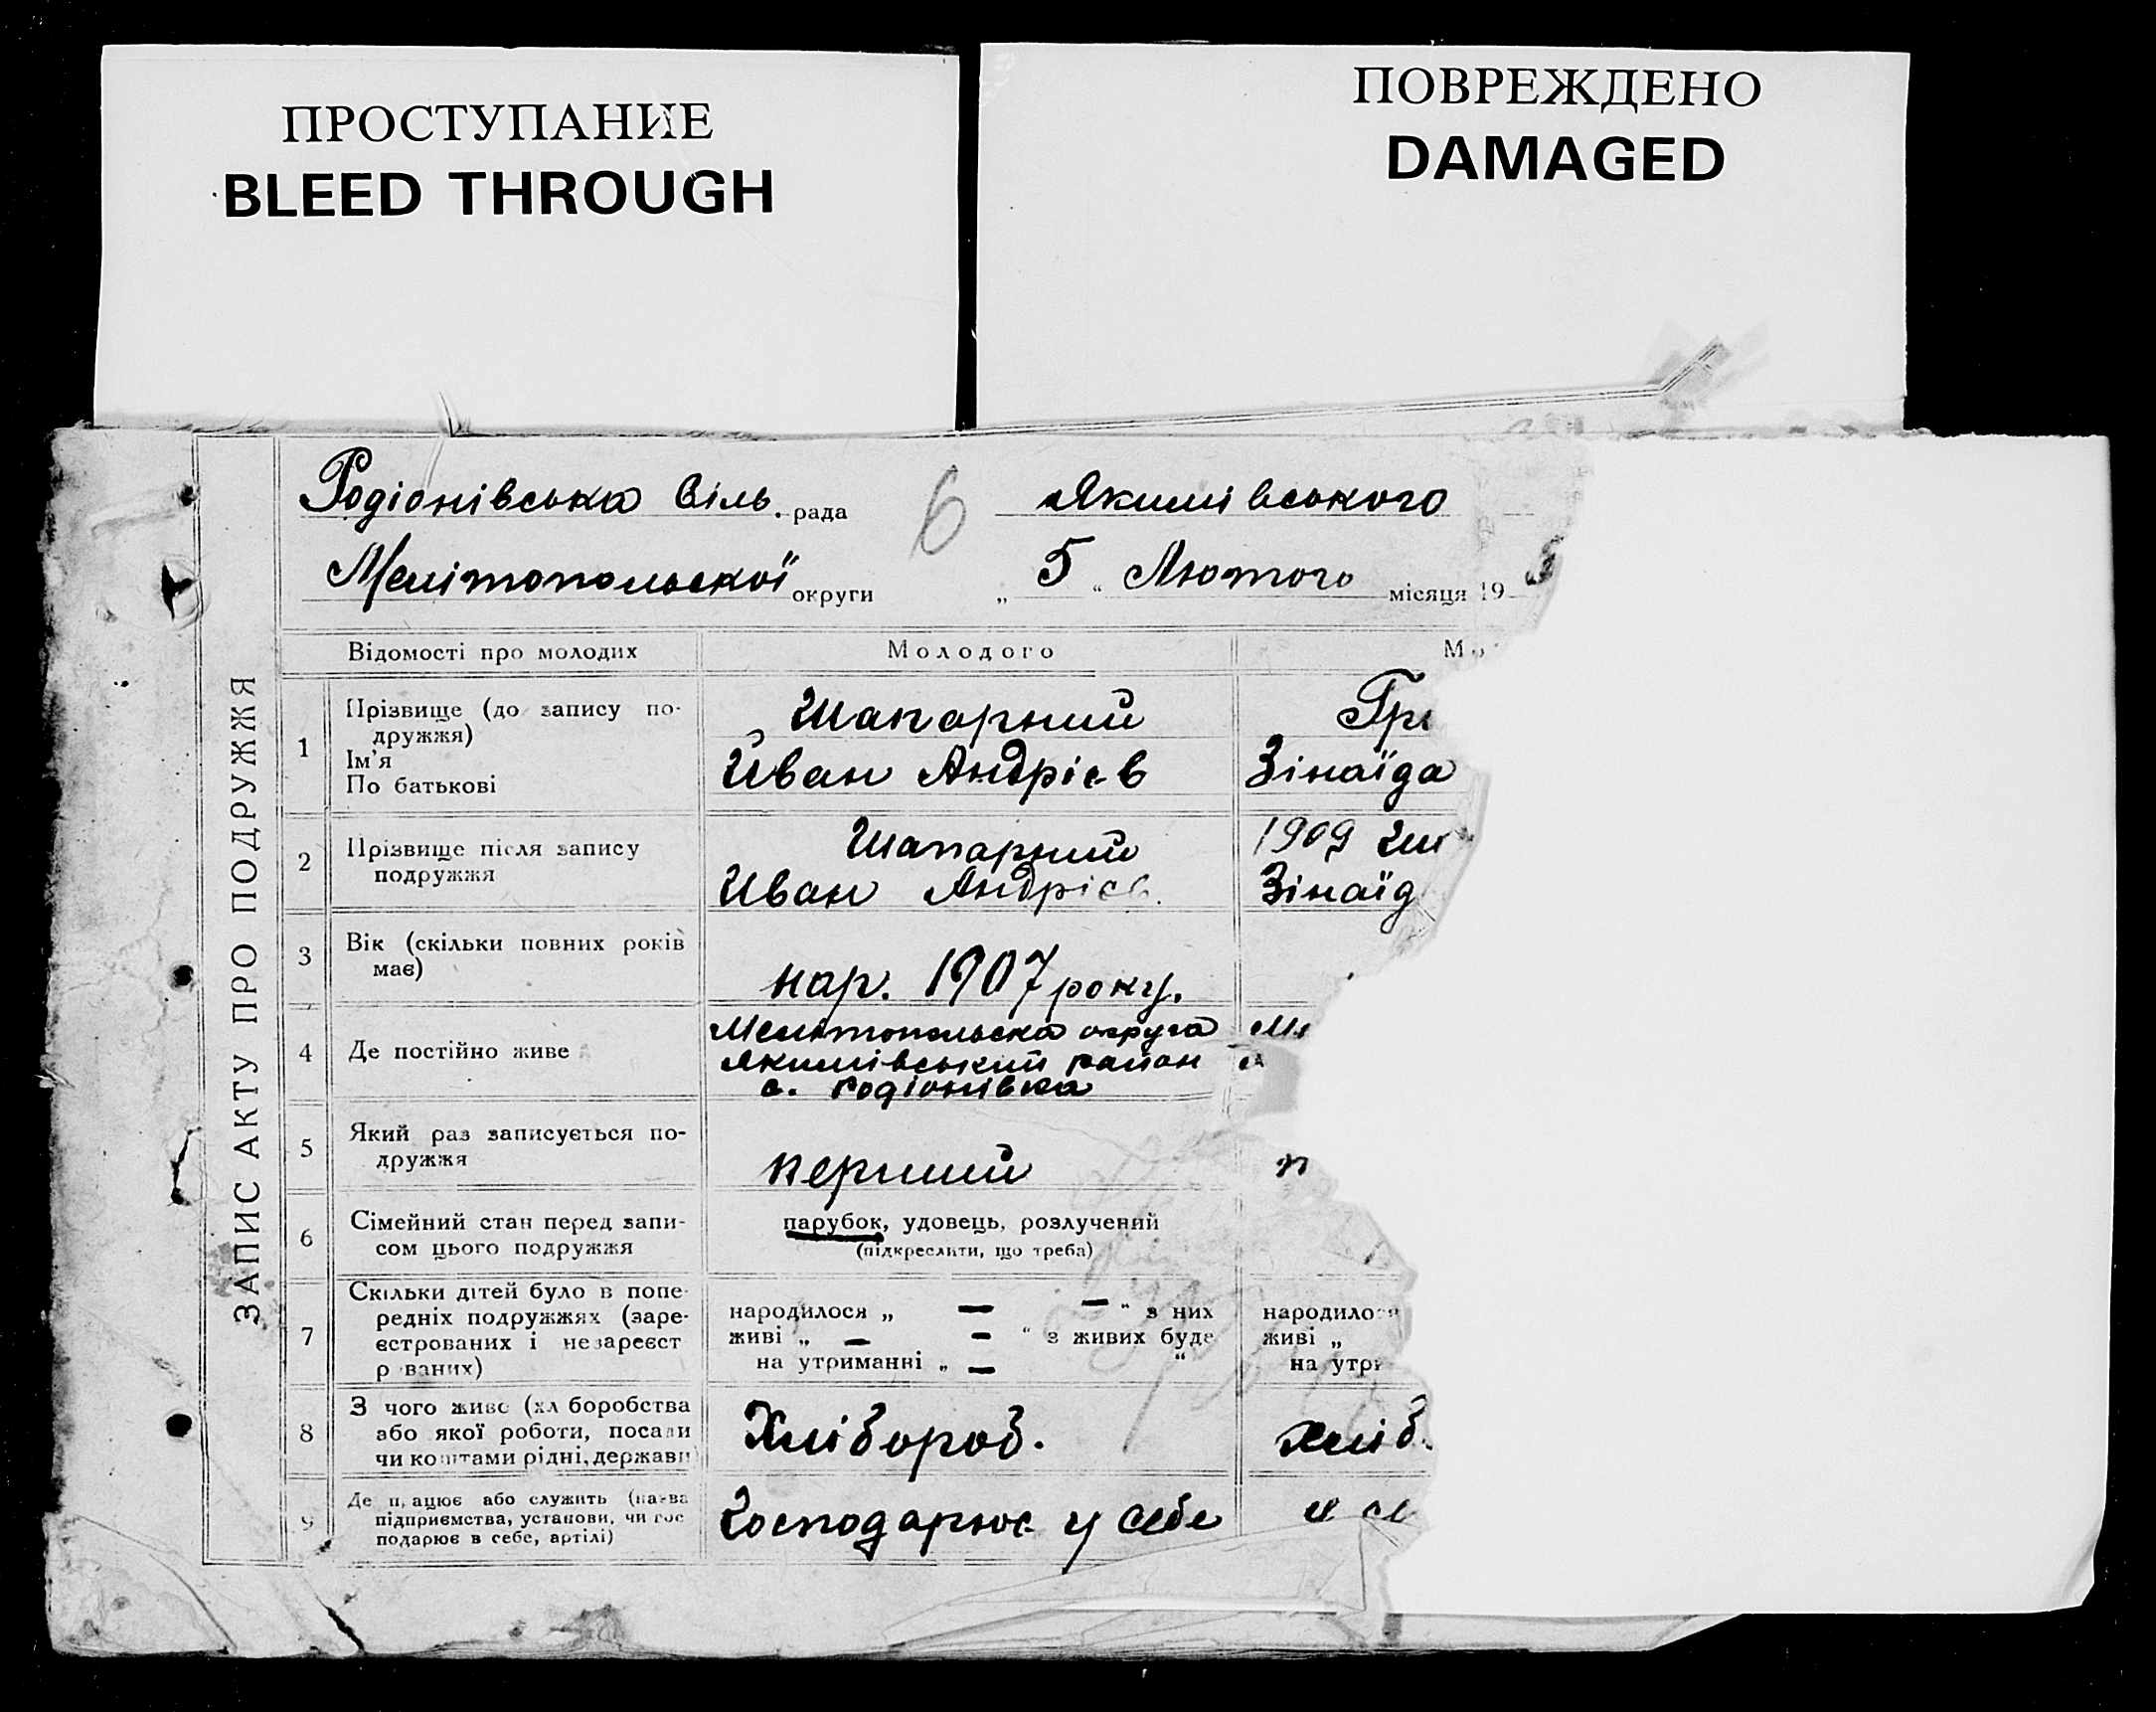 ПРОСТУПАНИЕ
BLEED THROUGH
ПОВРЕЖДЕНО
DAMAGED
ЗАПИС АКТУ ПРО ПОДРУЖЖЯ
Родіонівська Віль. рада 6 Якимівського
Мелітопольської округи „ 5 “ Лютого місяця 19
Відомості про молодих Молодого М
1 Прізвище (до запису по-
дружжя)
Ім'я
По батькові
Шапарний
Иван Андріев
Гри
Зінаїда
2 Прізвище після запису
подружжя
Шапарний
Иван Андріев.
1909
Зінаїд
3 Вік (скільки повних років
має)
нар. 1907 року.
4 Де постійно живе
Мелітопольска округа
Якимівський район
с. Родіонівка
5 Який раз записується по-
дружжя
перший
п
6 Сімейний стан перед запи-
сом цього подружжя
парубок, удовець, розлучений
(підкреслити, що треба)
7 Скільки дітей було в попе-
редніх подружжях (заре-
єстрованих і незареєст
р ваних)
народилося „ — — “ з них
живі „ — — “ з живих буде
на утриманні „ — “
народилося
живі „
на утри
8 З чого живе (хл боробства
або якої роботи, посади
чи коштами рідні, держави)
Хлібороб.
хліб.
9 Де працює або служить (назва
підприємства, установи, чи гос
подарює в себе, артілі)
Господарює у себе